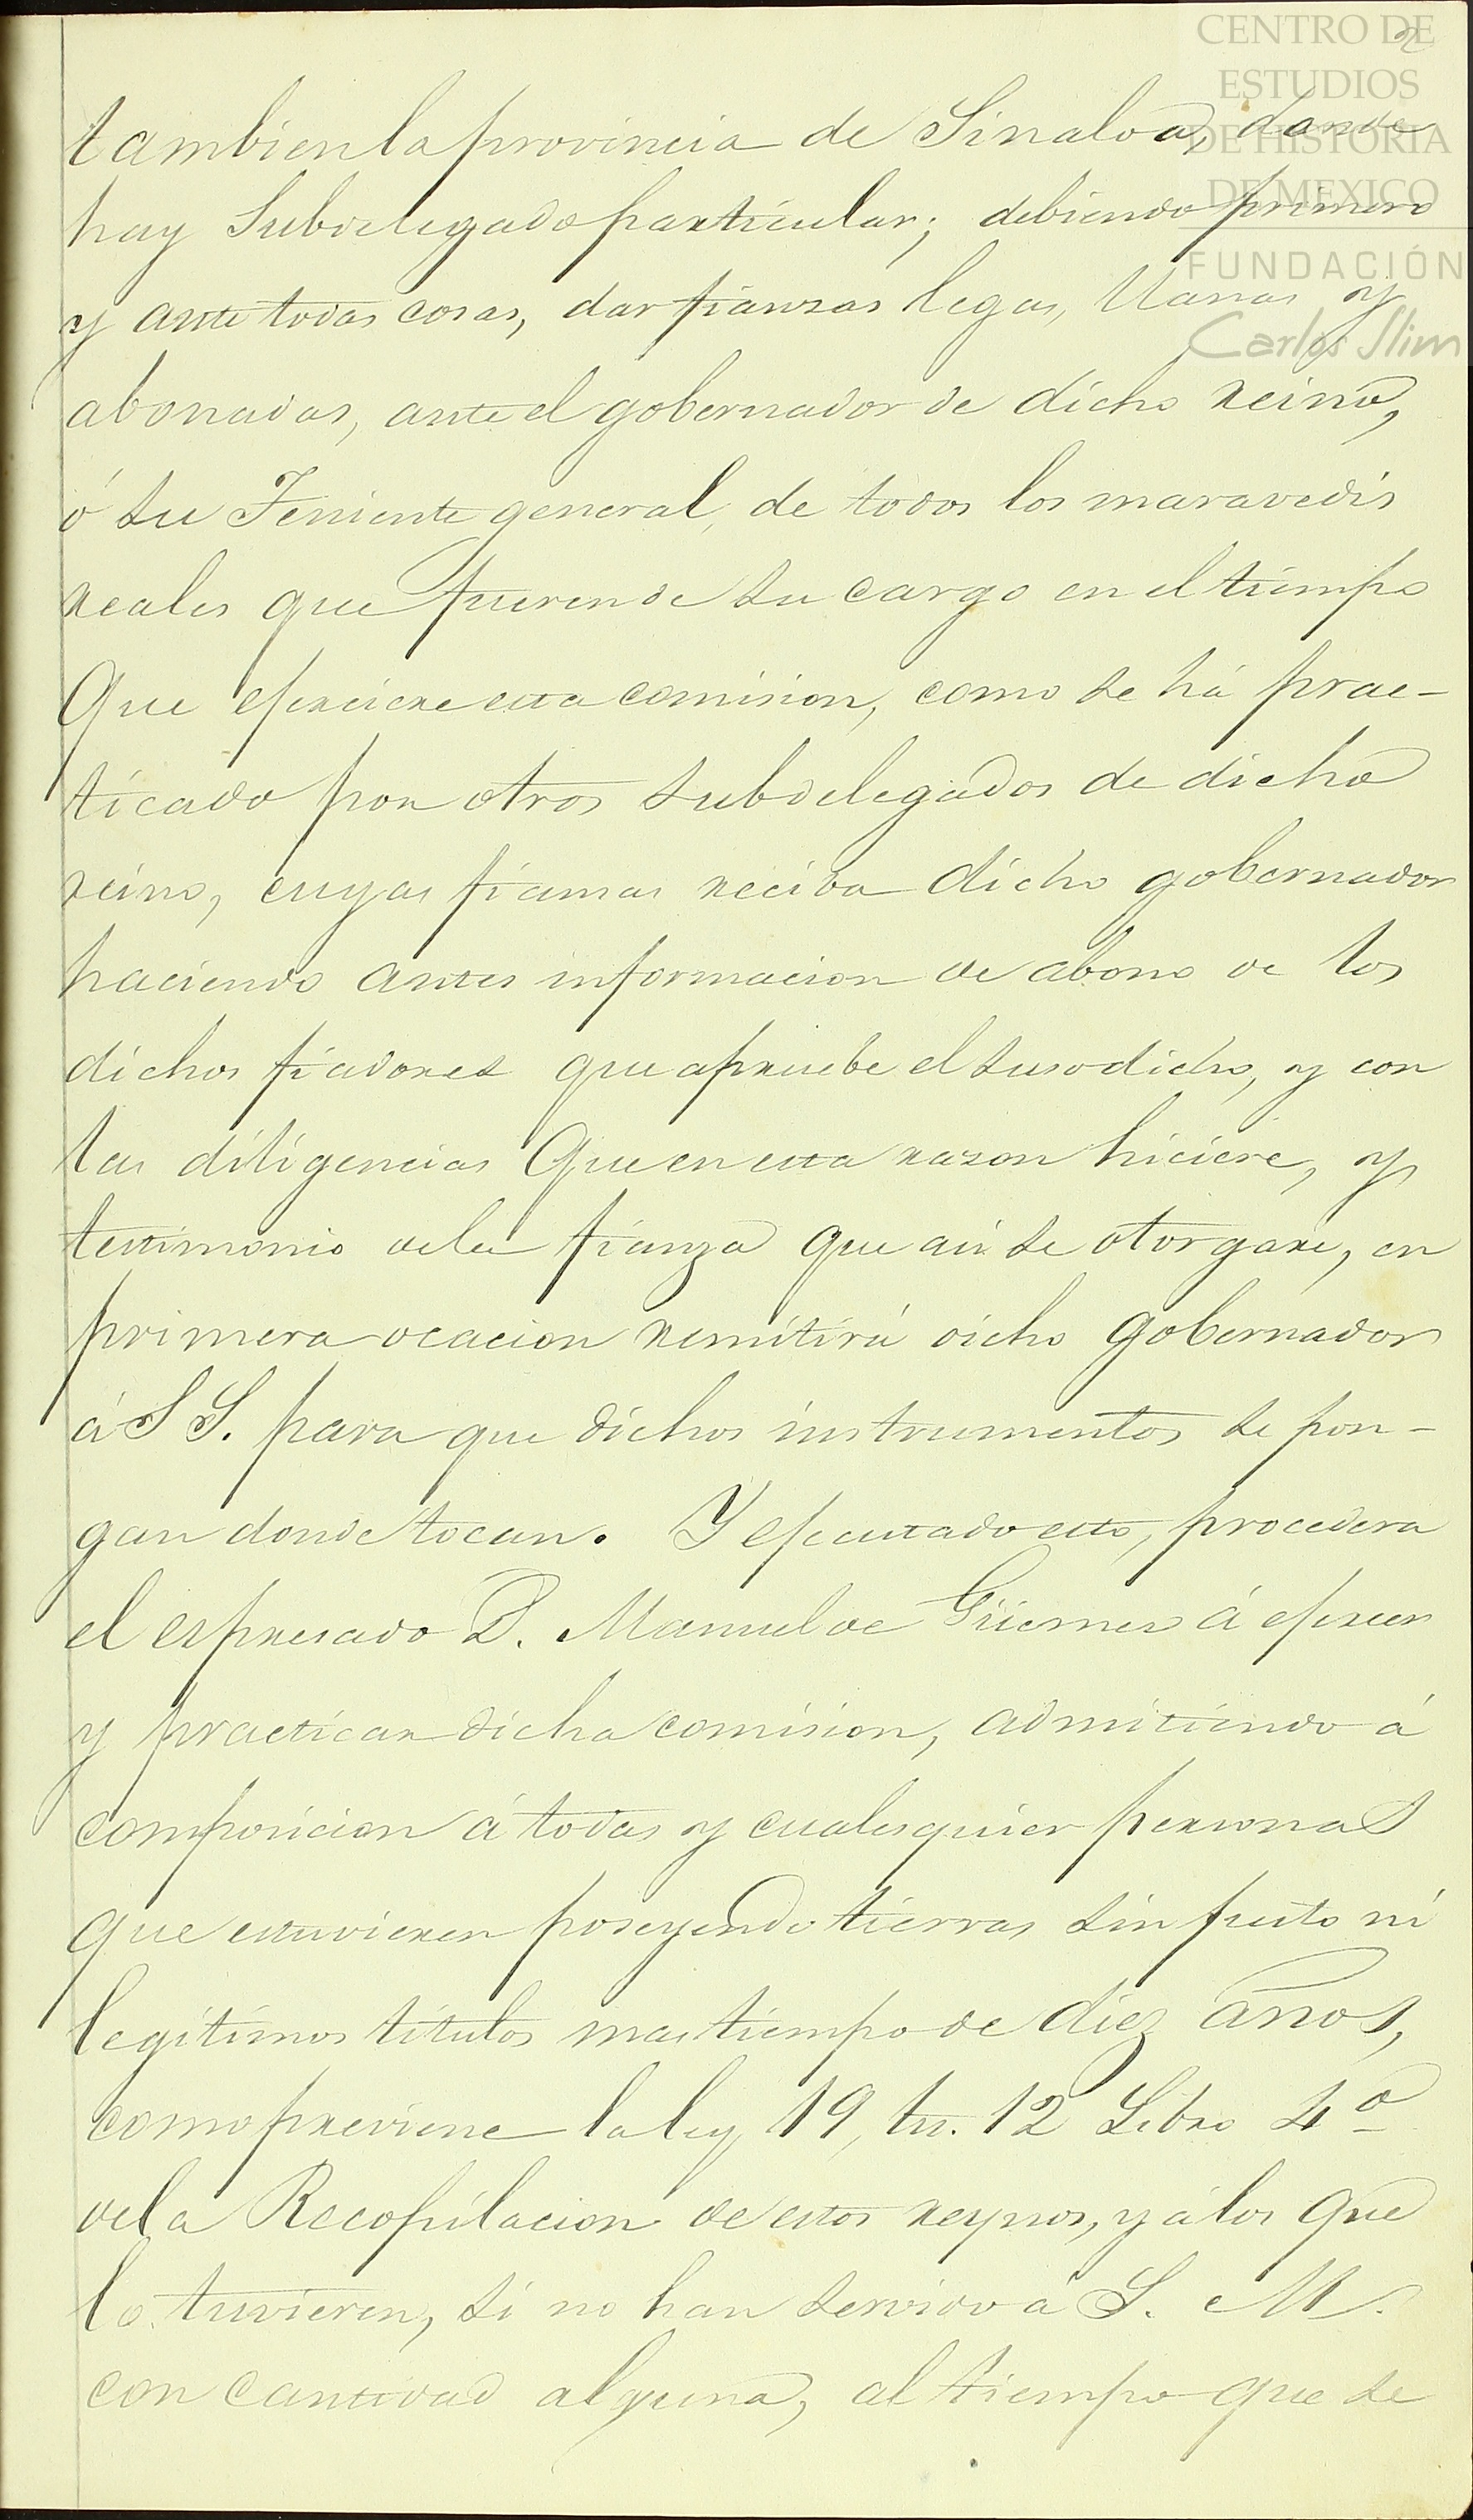 CENTRO DE
ESTUDIOS
DE HISTORIA
DE MEXICO
FUNDACIÓN
Carlos Slim
2
tambien la provincia de Sinaloa, donde
hay Subdelegado particular; debiendo primero
y ante todas cosas, dar fianzas legas, llanas y
abonadas, ante el gobernador de dicho reino,
ó su Teniente general, de todos los maravedis
reales que fueren de su cargo en el tiempo
Que ejerciere esta comision, como se há prac-
ticado por otros subdelegados de dicho
reino, cuyas fianzas reciba dicho gobernador
haciendo antes informacion de abono de los
dichos fiadores que apruebe el susodicho, y con
las diligencias Que en esta razon hiciere, y
testimonio de la fianza que asi se otorgare, en
primera ocacion remitirá dicho gobernador
á S S. para que dichos instrumentos se pon-
gan donde tocan. Y ejecutado esto, procedera
el espresado D. Manuel de Güemes á ejercer
y practicar dicha comision, admitiendo á
composicion á todas y cualesquier personas
que estuvieren poseyendo tierras sin justo ni
legitimos titulos mas tiempo de diez años,
como previene la ley 19, tit. 12 Libro 4º
de la Recopilacion de estos reynos, y á los que
lo tuvieren, si no han servido á S. M.
con cantidad alguna, al tiempo que se